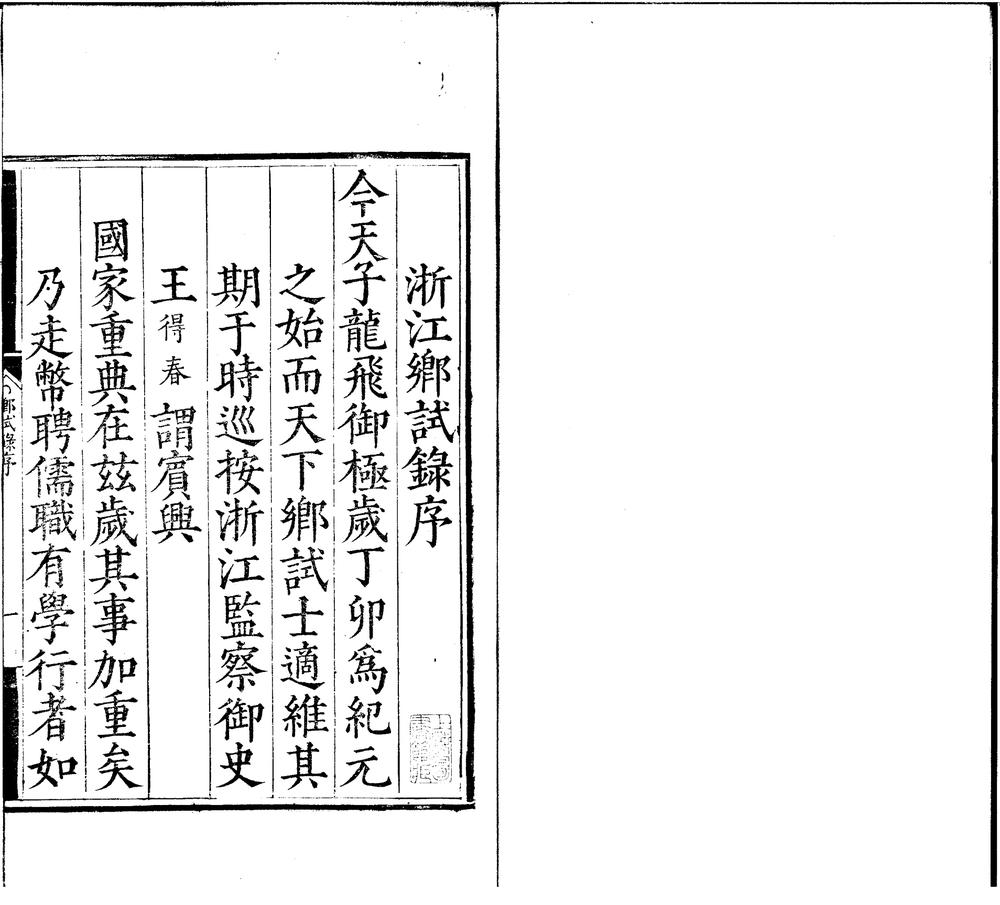 浙江鄉試錄序
今天子龍飛御極歲丁卯爲紀元
之始而天下鄉試士適維其
期于時巡按浙江監察御史
王得春謂賓興
國家重典在茲歲其事加重矣
乃走幣聘儒職有學行者如
鄉試錄序
一